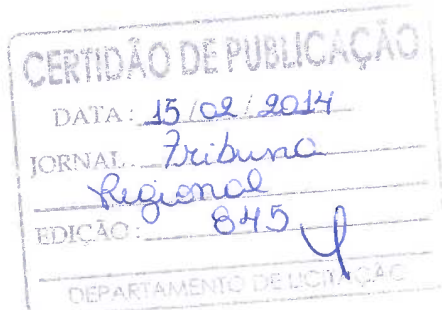 CERTIDÃO DE PUBLICAÇÃO
DATA: 15/02/2014
JORNAL: Tribuna
Regional
EDIÇÃO: 845
DEPARTAMENTO DE LICITAÇÃO